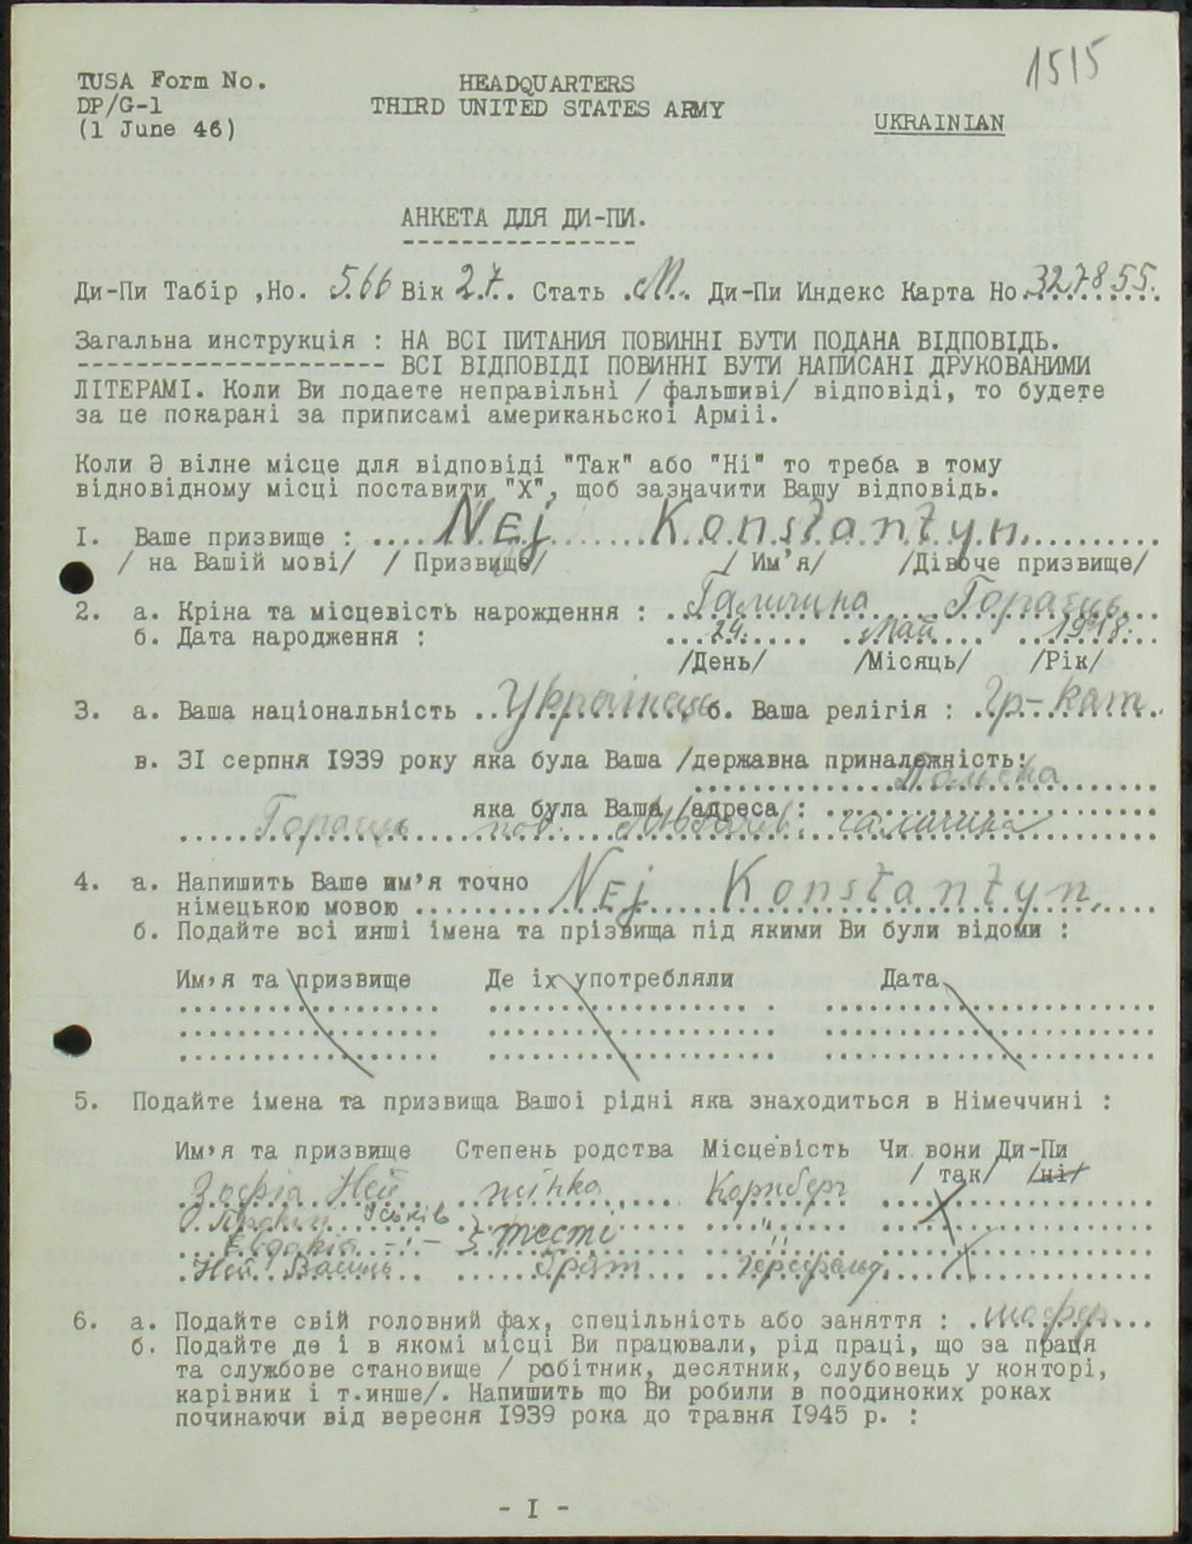 1515
TUSA Form No.
HEADQUARTERS
DP/G-1
THIRD UNITED STATES ARMY
UKRAINIAN
(1 June 46)
АНКЕТА ДЛЯ ДИ-ПИ.
Ди-Пи Табір ,Но. 566 Вік 27. Стать М. Ди-Пи Индекс Карта Но. 327855.
Загальна инструкція : НА ВСІ ПИТАНИЯ ПОВИННІ БУТИ ПОДАНА ВІДПОВІДЬ.
ВСІ ВІДПОВІДІ ПОВИННІ БУТИ НАПИСАНІ ДРУКОВАНИМИ
ЛІТЕРАМІ. Коли Ви подаете неправільні / фальшиві/ відповіді, то будете
за це покарані за приписамі американьскоі Арміі.
Коли Э вілне місце для відповіді "Так" або "Ні" то треба в тому
відновідному місці поставити "Х", щоб зазначити Вашу відповідь.
I. Ваше призвище : Nej Konstantyn.
/ на Вашій мові/ / Призвище/ / Им'я/ /Дівоче призвище/
2. а. Кріна та місцевість нарождення : Галичина Гораєць
б. Дата народження : 24. Май 1918.
/День/ /Місяць/ /Рік/
3. а. Ваша національність Українець б. Ваша релігія : Гр-кат.
в. 3I серпня I939 року яка була Ваша /державна приналежність:
Польска
яка була Ваша /адреса :
Гораєць пов. Любачів, Галичина
4. а. Напишить Ваше им'я точно
німецькою мовою Nej Konstantyn.
б. Подайте всі инші імена та прізвища під якими Ви були відоми :
Им'я та призвище Де іх употребляли Дата
5. Подайте імена та призвища Вашоі рідні яка знаходиться в Німеччині :
Им'я та призвище Степень родства Місцевість Чи вони Ди-Пи
/ так/ /ні/
Зофіа Ней жінка Корнберг
Уськів " X
Евдокіа -"- тесті "
Ней Василь брат Герсфельд X
6. а. Подайте свій головний фах, спецільність або заняття : шофер
б. Подайте де і в якомі місці Ви працювали, рід праці, що за праця
та службове становище / робітник, десятник, слубовець у конторі,
карівник і т.инше/. Напишить що Ви робили в поодиноких роках
починаючи від вересня I939 рока до травня I945 р. :
- I -